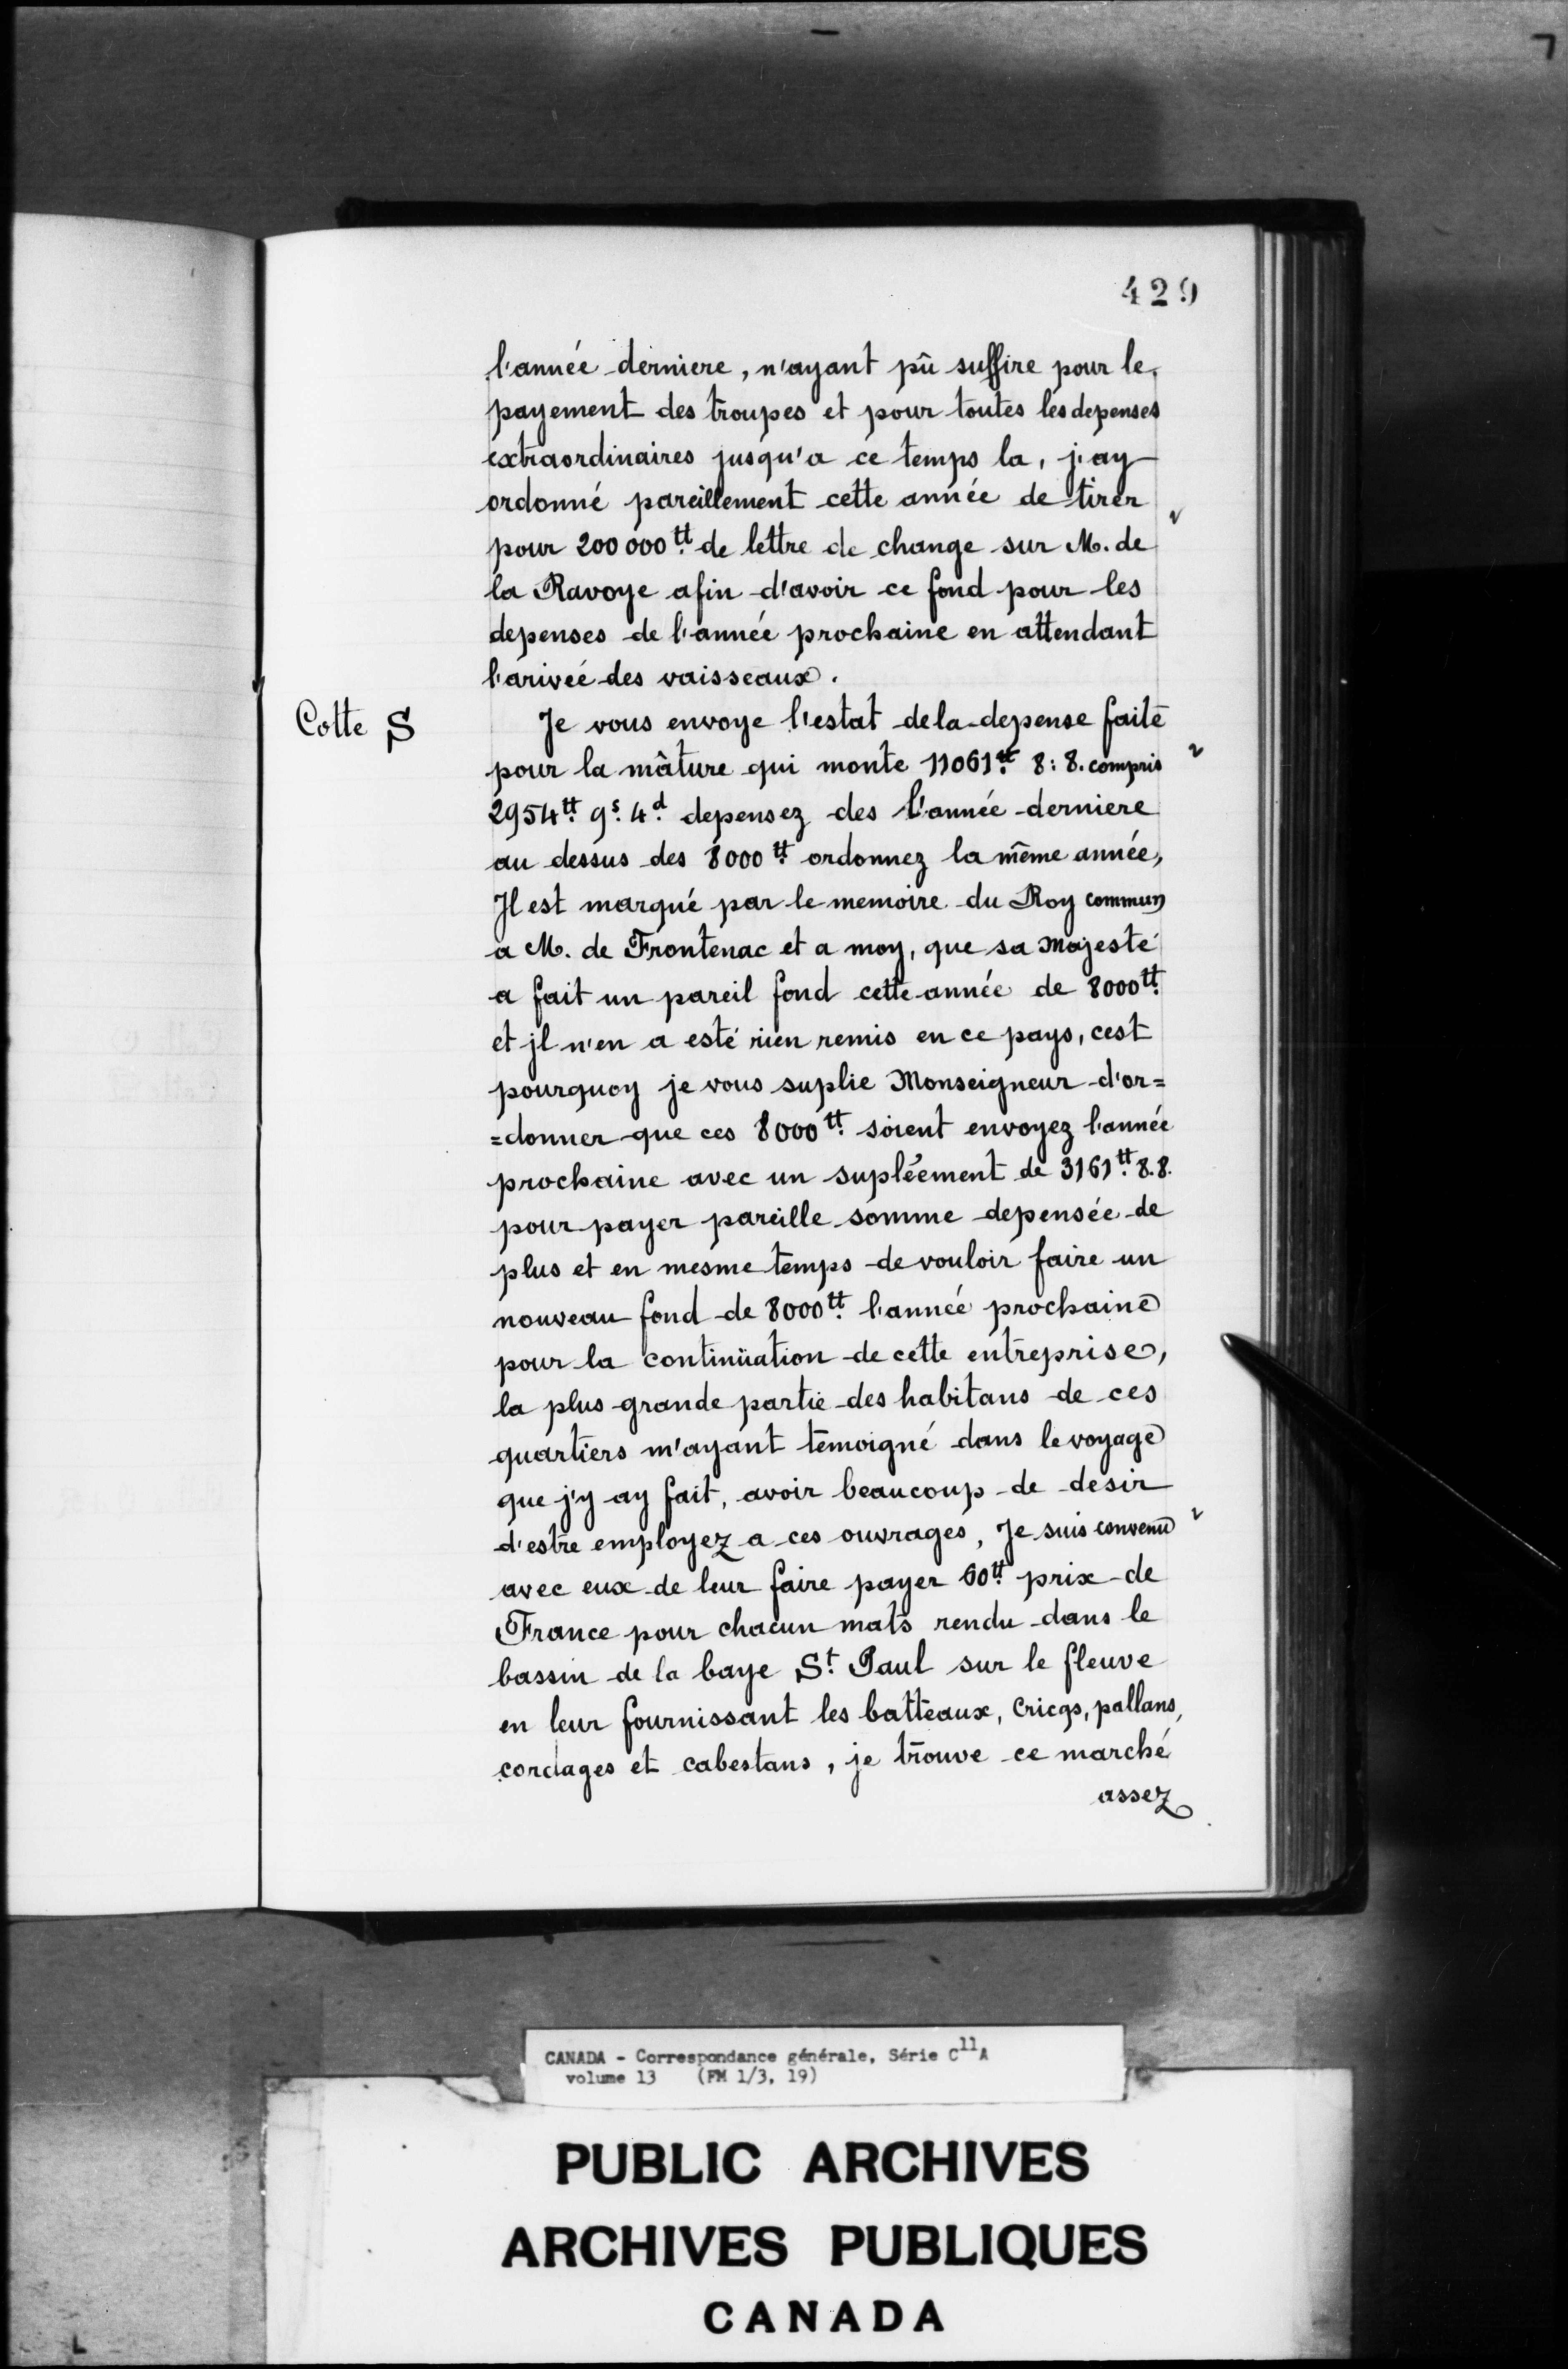 429
l'année derniere, n'ayant pû suffire pour le
payement des troupes et pour toutes les depenses
extraordinaires jusqu'a ce temps la, j'ay
ordonné pareillement cette année de tirer
pour 200000tt de lettre de change sur M. de
la Ravoye afin d'avoir ce fond pour les
depenses de l'année prochaine en attendant
l'arivée des vaisseaux.
Cotte S
Je vous envoye l'estat de la depense faite
pour la mâture qui monte 11061tt 8:8. compris
2954tt 9s. 4d depensez des l'année derniere
au dessus des 8000tt ordonnez la même année,
Il est marqué par le memoire du Roy commun
a M. de Frontenac et a moy, que sa Majesté
a fait un pareil fond cette année de 8000tt
et jl n'en a esté rien remis en ce pays, cest
pourquoy je vous suplie Monseigneur d'or=
=donner que ces 8000tt soient envoyez l'année
prochaine avec un supléement de 3161tt 8.8.
pour payer pareille somme depensée de
plus et en mesme temps de vouloir faire un
nouveau fond de 8000tt l'année prochaine
pour la continüation de cette entreprise,
la plus grande partie des habitans de ces
quartiers m'ayant temoigné dans le voyage
que j'y ay fait, avoir beaucoup de desir
d'estre employez a ces ouvrages, Je suis convenu
avec eux de leur faire payer 60tt prix de
France pour chacun mats rendu dans le
bassin de la baye St Paul sur le fleuve
en leur fournissant les batteaux, Cricqs, pallans,
cordages et cabestans, je trouve ce marché
assez
CANADA - Correspondance générale, Série C11A
volume 13 (FM 1/3, 19)
PUBLIC ARCHIVES
ARCHIVES PUBLIQUES
CANADA